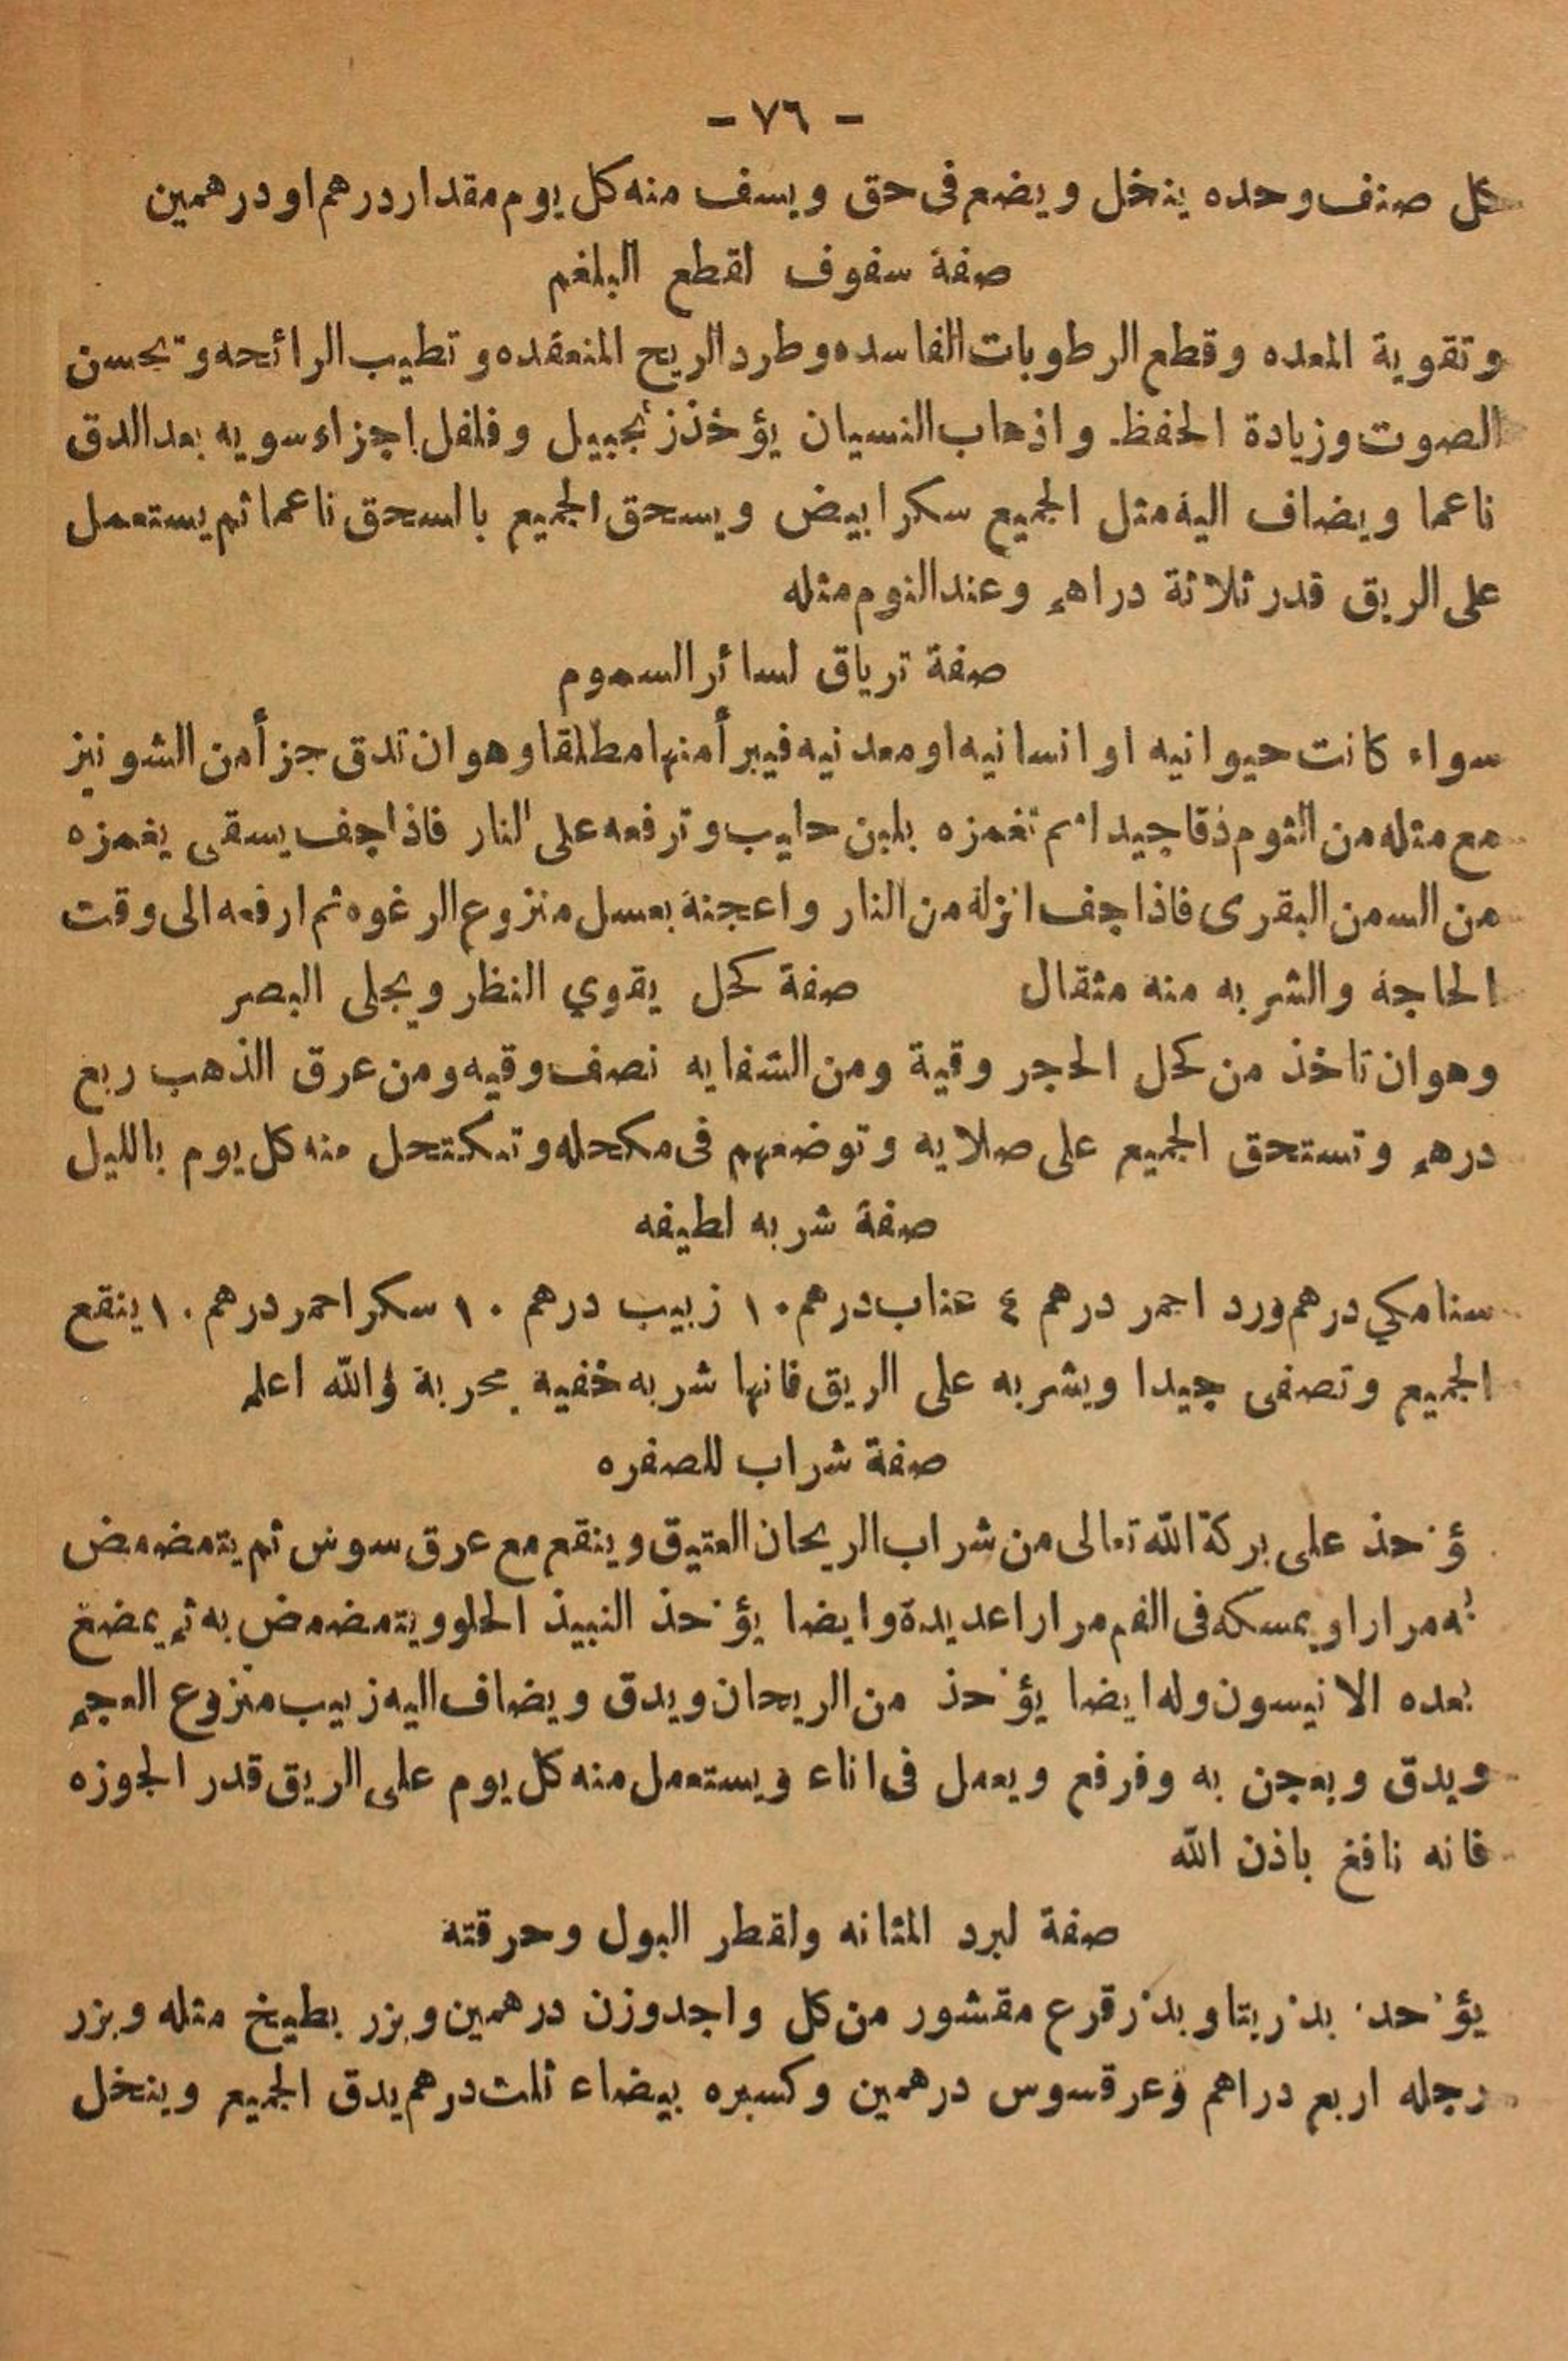 - ٧٦ -
كل صنف وحده ينخل ويضع فى حق ويسف منه كل يوم مقدار درهم او درهمين
صفة سفوف لقطع البلغم
وتقوية المعده وقطع الرطوبات الفاسده وطرد الريح المنعقده وتطيب الرائحه وتحسن
الصوت وزيادة الحفظ واذهاب النسيان يؤخذ زنجبيل وفلفل اجزاء سويه بعد الدق
ناعما ويضاف اليه مثل الجميع سكر ابيض ويسحق الجميع بالسحق ناعما ثم يستعمل
على الريق قدر ثلاثة دراهم وعند النوم مثله
صفة ترياق لسائر السموم
سواء كانت حيوانيه او انسانيه او معدنيه فيبرأ منها مطلقا وهو ان تدق جزأ من الشونيز
مع مثله من الثوم دقا جيدا ثم تغمزه بلبن حليب وترفعه على النار فاذا جف يسقى يغمزه
من السمن البقرى فاذا جف انزله من النار واعجنة بعسل منزوع الرغوه ثم ارفعه الى وقت
الحاجة والشربه منه مثقال صفة كحل يقوي النظر ويجلى البصر
وهو ان تاخذ من كحل الحجر وقية ومن الشفايه نصف وقيه ومن عرق الذهب ربع
درهم وتستحق الجميع على صلايه وتوضعهم فى مكحله وتكتحل منه كل يوم بالليل
صفة شربه لطيفه
سنامكي درهم ورد احمر درهم ٤ عناب درهم ١٠ زبيب درهم ١٠ سكر احمر درهم ١٠ ينقع
الجميع وتصفى جيدا ويشربه على الريق فانها شربه خفيه مجربة والله اعلم
صفة شراب للصفره
ؤخذ على بركة الله تعالى من شراب الريحان العتيق وينقع مع عرق سوس ثم يتمضمض
به مرارا ويمسكه فى الفم مرارا عديدة وايضا يؤخذ النبيذ الحلو ويتمضمض به ثم يمضغ
بعده الانيسون وله ايضا يؤخذ من الريحان ويدق ويضاف اليه زبيب منزوع العجم
ويدق ويعجن به وفرفع ويعمل فى اناء ويستعمل منه كل يوم على الريق قدر الجوزه
فانه نافع باذن الله
صفة لبرد المثانه ولقطر البول وحرقته
يؤخذ بذر بتا وبذر قرع مقشور من كل واحد وزن درهمين وبزر بطيخ مثله وبزر
رجله اربع دراهم وعرقسوس درهمين وكسبره بيضاء ثلث درهم يدق الجميع وينخل